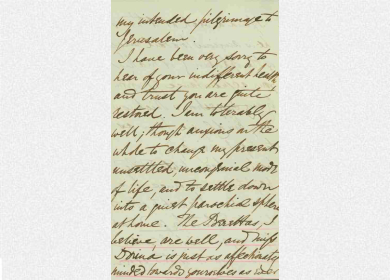 my intended pilgrimage to
Jerusalem.
I have been very sorry to
hear of your indifferent health
and trust you are quite
restored. I am tolerably
well; though anxious on the
whole to change my present
unsettled, uncongenial mode
of life, and to settle down
into a quiet parochial sphere
at home. The I
believe, are well, and Miss
is just as affectionately
minded towards yourselves as